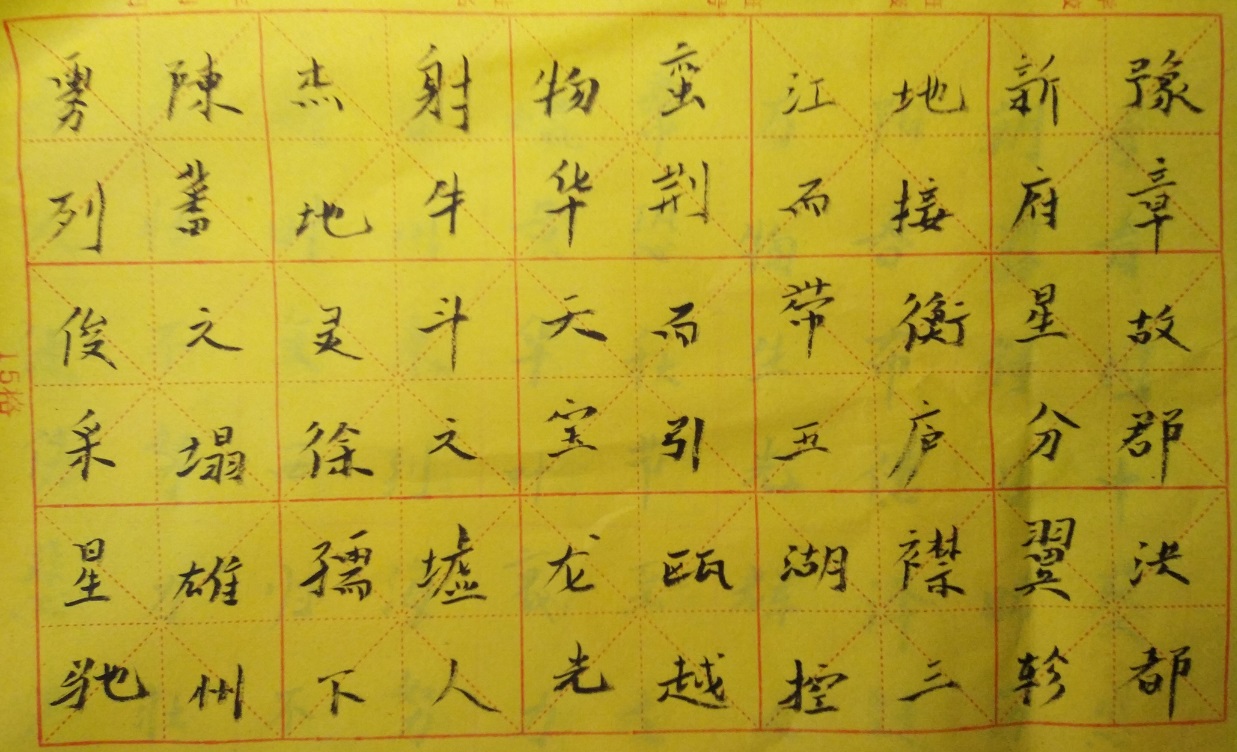 豫章故郡洪都
新府星分翼轸
地接衡庐襟三
江而带五湖控
蛮荆而引瓯越
物华天宝龙光
射牛斗之墟人
杰地灵徐孺下
陳蕃之塌雄州
雾列俊采星驰
15格